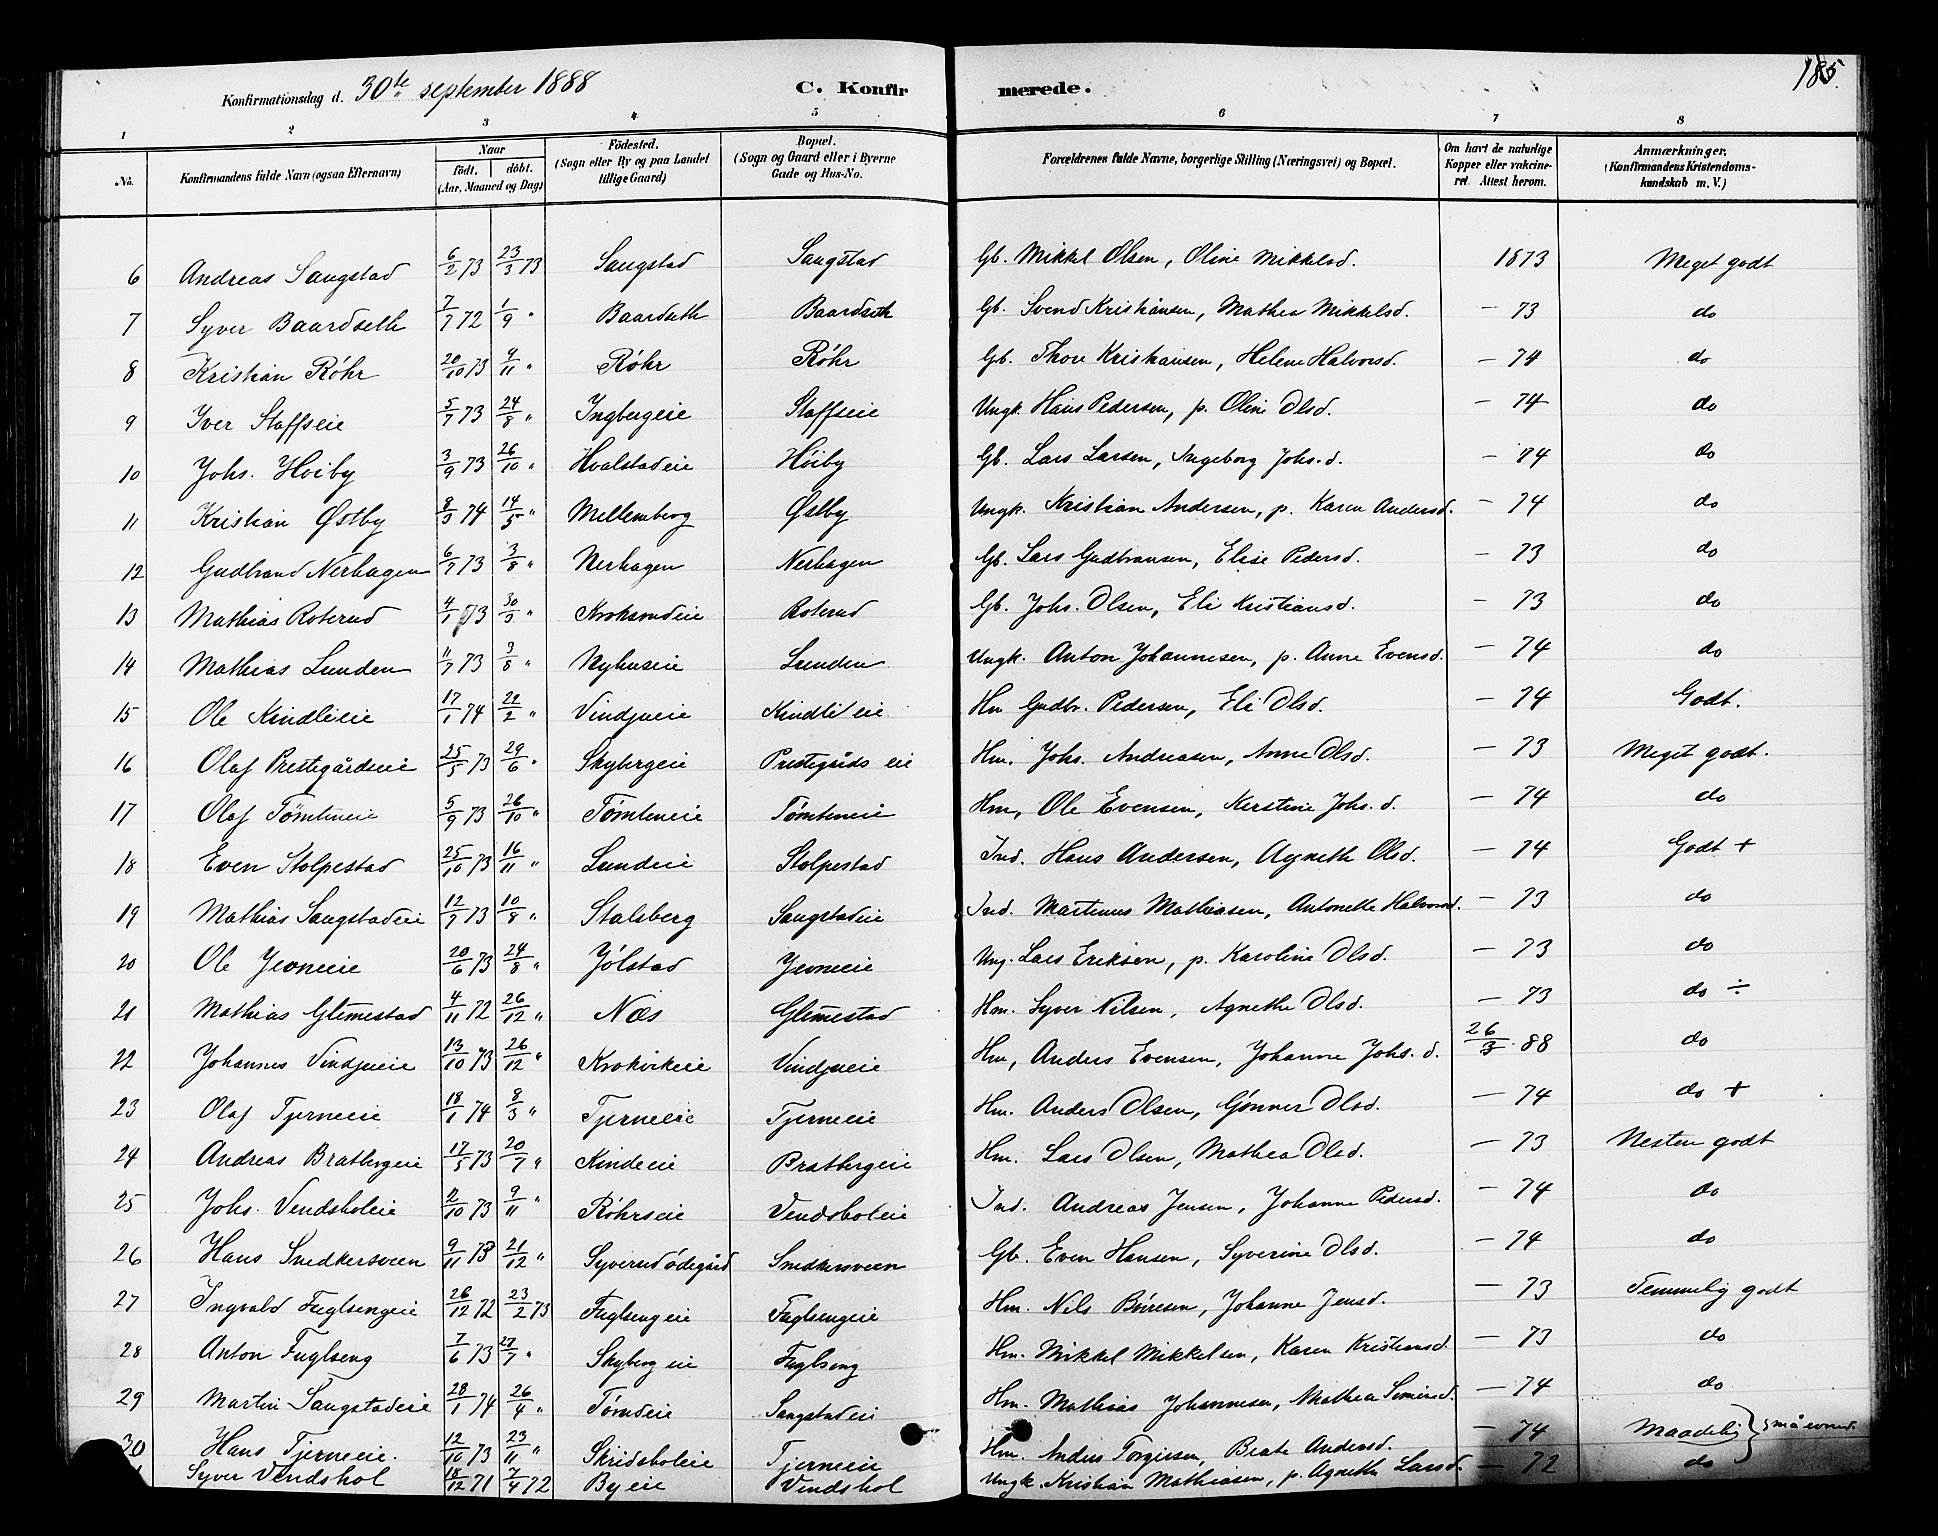 Konfirmationsdag d. 30te september 1888 C. Konfirmerede. 185.
1 2 3 4 5 6 7 8
No. Konfirmandens fulde Navn (ogsaa Efternavn) Naar födt. döbt. (Aar, Maaned og Dag) Födested. (Sogn eller By og paa Landet tillige Gaard) Bopæl. (Sogn og Gaard eller i Byerne Gade og Hus-No. Forældrenes fulde Navne, borgerlige Stilling (Næringsvei) og Bopæl. Om havt de naturlige Kopper eller vakcineret. Attest herom. Anmærkninger. (Konfirmandens Kristendomskundskab m. V.)
6 Andreas Saugstad 6/2 73 23/3 73 Saugstad Saugstad Gb. Mikkel Olsen, Oline Mikkelsd. 1873 Meget godt
7 Syver Baardseth 7/7 72 1/9 " Baardseth Baardseth Gb. Svend Kristiansen, Mathea Mikkelsd. — 73 do
8 Kristian Röhr 20/10 73 9/11 " Röhr Röhr Gb. Thore Kristiansen, Helene Halvorsd. — 74 do
9 Iver Staffseie 5/7 73 24/8 " Ingbergeie Staffseie Ungk. Hans Pedersen, p. Oline Olsd. — 74 do
10 Johs. Hoiby 3/9 73 26/10 " Hvalstadeie Höiby Gb. Lars Larsen, Ingeborg Johs. d. — 74 do
11 Kristian Østby 8/3 74 14/5 " Mellemberg Østby Ungk. Kristian Andersen, p. Karen Andersd. — 74 do
12 Gudbrand Nerhagen 6/7 73 3/8 " Nerhagen Nerhagen Gb. Lars Gudbransen, Elise Pedersd. — 73 do
13 Mathias Roterud 4/1 73 30/3 " Kroksrudeie Roterud Gb. Johs. Olsen, Eli Kristiansd. — 73 do
14 Mathias Lunden 11/7 73 3/8 " Nyhuseie Lunden Ungk. Anton Johannesen, p. Anne Evensd. — 74 do
15 Ole Kindlieie 17/1 74 22/2 " Vindjueie Kindlieie Hm Gudbr. Pedersen, Eli Olsd. — 74 Godt.
16 Olaf Prestegårdseie 25/5 73 29/6 " Skybergeie Prestegårds eie Hm. Johs. Andreasen, Anne Olsd. — 73 Meget godt.
17 Olaf Tømteneie 5/9 73 26/10 " Tømteneie Tømteneie Hm, Ole Evensen, Kerstine Johs. d. — 74 do
18 Even Stolpestad 25/10 73 16/11 " Lundeie Stolpestad Ind. Hans Andersen, Agnethe Olsd. — 74 Godt +
19 Mathias Saugstadeie 12/7 73 10/8 " Stalsberg Saugstadeie Ind. Martinus Mathiasen, Antonette Halvorsd. — 73 do
20 Ole Jevneeie 20/6 73 24/8 " Jølstad Jevneeie Ung. Lars Eriksen, p. Karoline Olsd. — 73 do
21 Mathias Glemestad 4/11 72 26/12 " Næs Glemestad Hm. Syver Nilsen, Agnethe Olsd. — 73 do ÷
22 Johannes Vindjueie 13/10 73 26/12 " Krokvikeie Vindjueie Hm, Anders Evensen, Johanne Johs. d. 26/3 88 do
23 Olaf Tjerneeie 18/1 74 8/3 " Tjerneeie Tjerneeie Hm. Anders Olsen, Gønner Olsd. — 74 do +
24 Andreas Bratbergeie 17/5 73 20/7 " Kindeeie Bratbergeie Hm. Lars Olsen, Mathea Olsd. — 73 Nesten godt
25 Johs. Vendsholeie 2/10 73 9/11 " Röhrseie Vendsholeie Ind. Andreas Jensen, Johanne Pedersd. — 74 do
26 Hans Snedkersveen 9/11 73 21/12 " Syverud ödegård Snedkersveen Gb. Even Hansen, Syverine Olsd. — 74 do
27 Ingvald Fuglsengeie 26/12 72 23/2 73 Fuglsengeie Fuglsengeie Hm. Nils Børesen, Johanne Jensd. — 73 Temmelig godt
28 Anton Fuglseng 7/6 73 27/7 " Skyberg eie Fuglseng Hm. Mikkel Mikkelsen, Karen Kristiansd. — 73 do
29 Martin Saugstadeie 28/1 74 26/4 " Tømdeie Saugstadeie Hm. Mathias Johannesen, Mathea Simensd. — 74 do
30 Hans Tjerneeie. 12/10 73 23/11 " Skridsholeie Tjerneeie Hm. Anders Torgersen, Beate Andersd. — 74 Maadelig } små evner.
Syver Vendshol 18/12 71 7/4 72 Byeie Vendshol Ungk. Kristian Mathiasen, p. Agnethe Larsd. — 72 do